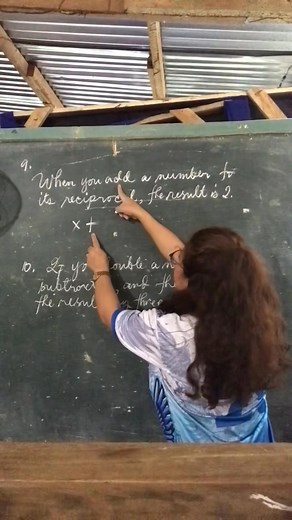 9.
When you add a number to
its reciprocal, the result is 2.
x +
10. If you double a
subtract, and the
the result three